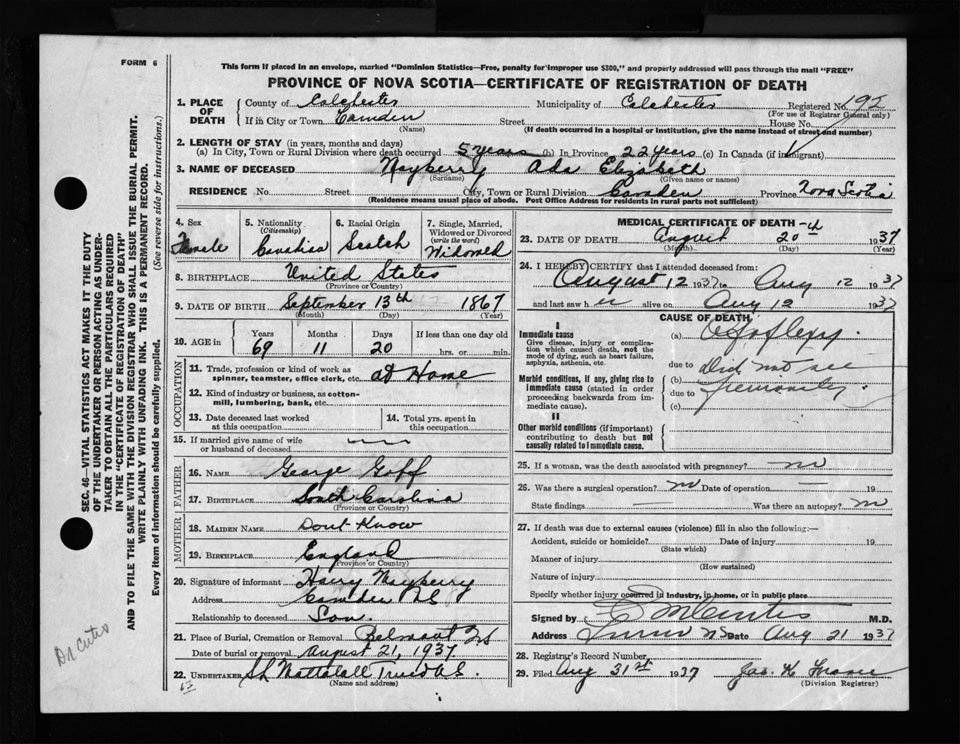 FORM 6
This form if placed in an envelope, marked "Dominion Statistics—Free, penalty for improper use $300," and properly addressed will pass through the mail "FREE"
PROVINCE OF NOVA SCOTIA—CERTIFICATE OF REGISTRATION OF DEATH
1. PLACE OF DEATH
County of Colchester Municipality of Colchester Registered No. 192
(For use of Registrar General only)
If in City or Town Camden Street House No.
(Name) (If death occurred in a hospital or institution, give the name instead of street and number)
2. LENGTH OF STAY (in years, months and days)
(a) In City, Town or Rural Division where death occurred 5 years (b) In Province 22 years (c) In Canada (if immigrant)
3. NAME OF DECEASED Mayberry Ada Elizabeth
(Surname) (Given name or names)
RESIDENCE No. Street City, Town or Rural Division Camden Province Nova Scotia
(Residence means usual place of abode. Post Office Address for residents in rural parts not sufficient)
4. Sex Female
5. Nationality (Citizenship) Canadian
6. Racial Origin Scotch
7. Single, Married, Widowed or Divorced (write the word) Widowed
8. BIRTHPLACE United States
(Province or Country)
9. DATE OF BIRTH September 13th 1867
(Month) (Day) (Year)
10. AGE in Years Months Days If less than one day old
69 11 20 hrs. or min.
OCCUPATION
11. Trade, profession or kind of work as spinner, teamster, office clerk, etc. at Home
12. Kind of industry or business, as cotton-mill, lumbering, bank, etc.
13. Date deceased last worked at this occupation
14. Total yrs. spent in this occupation
15. If married give name of wife or husband of deceased
FATHER
16. NAME George Goff
17. BIRTHPLACE South Carolina
(Province or Country)
MOTHER
18. MAIDEN NAME Dont Know
19. BIRTHPLACE England
(Province or Country)
20. Signature of informant Harry Mayberry
Address Camden NS
Relationship to deceased Son
21. Place of Burial, Cremation or Removal Belmont NS
Date of burial or removal August 21, 1937
22. UNDERTAKER
(Name and address)
MEDICAL CERTIFICATE OF DEATH
23. DATE OF DEATH August 20th 1937
(Month) (Day) (Year)
24. I HEREBY CERTIFY that I attended deceased from:
August 12 1937 to Aug 12 1937
and last saw her alive on Aug 12 1937
CAUSE OF DEATH
I
Immediate cause
Give disease, injury or complication which caused death, not the mode of dying, such as heart failure, asphyxia, asthenia, etc.
(a) Apoplexy.
due to Did not see
Morbid conditions, if any, giving rise to immediate cause (stated in order proceeding backwards from immediate cause).
(b)
due to
(c)
II
Other morbid conditions (if important) contributing to death but not causally related to immediate cause.
25. If a woman, was the death associated with pregnancy? no
26. Was there a surgical operation? no Date of operation — 19
State findings — Was there an autopsy? no
27. If death was due to external causes (violence) fill in also the following:—
Accident, suicide or homicide? Date of injury 19
(State which)
Manner of injury
(How sustained)
Nature of injury
Specify whether injury occurred in industry, in home, or in public place
Signed by M.D.
Address Truro NS Date Aug 21 1937
28. Registrar's Record Number
29. Filed Aug 31st 1937
(Division Registrar)
SEC. 46—VITAL STATISTICS ACT MAKES IT THE DUTY
OF THE UNDERTAKER OR PERSON ACTING AS UNDERTAKER TO OBTAIN ALL THE PARTICULARS REQUIRED
IN THE "CERTIFICATE OF REGISTRATION OF DEATH"
AND TO FILE THE SAME WITH THE DIVISION REGISTRAR WHO SHALL ISSUE THE BURIAL PERMIT.
WRITE PLAINLY WITH UNFADING INK. THIS IS A PERMANENT RECORD.
Every item of information should be carefully supplied. (See reverse side for instructions.)